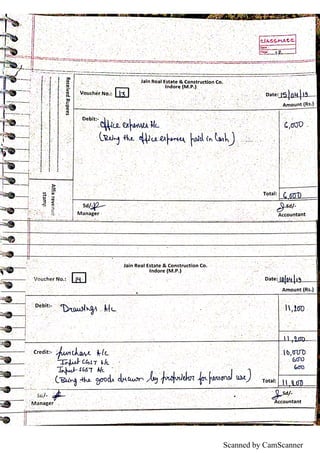 CLASSMATE
Date
Page
Jain Real Estate & Construction Co.
Indore (M.P.)
Voucher No.: 13
Date: 15/04/19
Amount (Rs.)
Received Rupees
Affix revenue
stamp
Debit:- Office expenses A/c
6,000
(Being the office expenses paid in cash)
Total: 6,000
Sd/-
Manager
Sd/-
Accountant
Jain Real Estate & Construction Co.
Indore (M.P.)
Voucher No.: 14
Date: /04/19
Amount (Rs.)
Debit:- Drawings A/c
11,200
11,200
Credit:- Purchase A/c
10,000
Input CGST A/c
600
Input SGST A/c
600
(Being the goods drawn by proprietor for personal use)
Total: 11,200
Sd/-
Manager
Sd/-
Accountant
Scanned by CamScanner